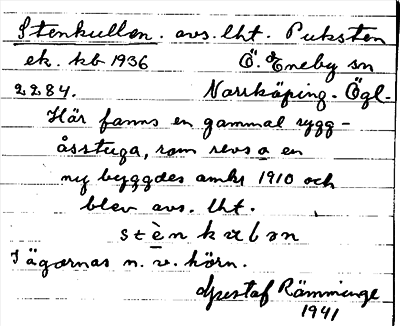 Stenkullen. avs. lht. Puksten
ek. kb 1936 Ö. Eneby sn
2284. Norrköping. Ögl.
Här fanns en gammal rygg-
åsstuga, som revs o en
ny byggdes omkr 1910 och
blev avs. lht.
I ägornas n. v. hörn.
Gustaf Rämminge
1941